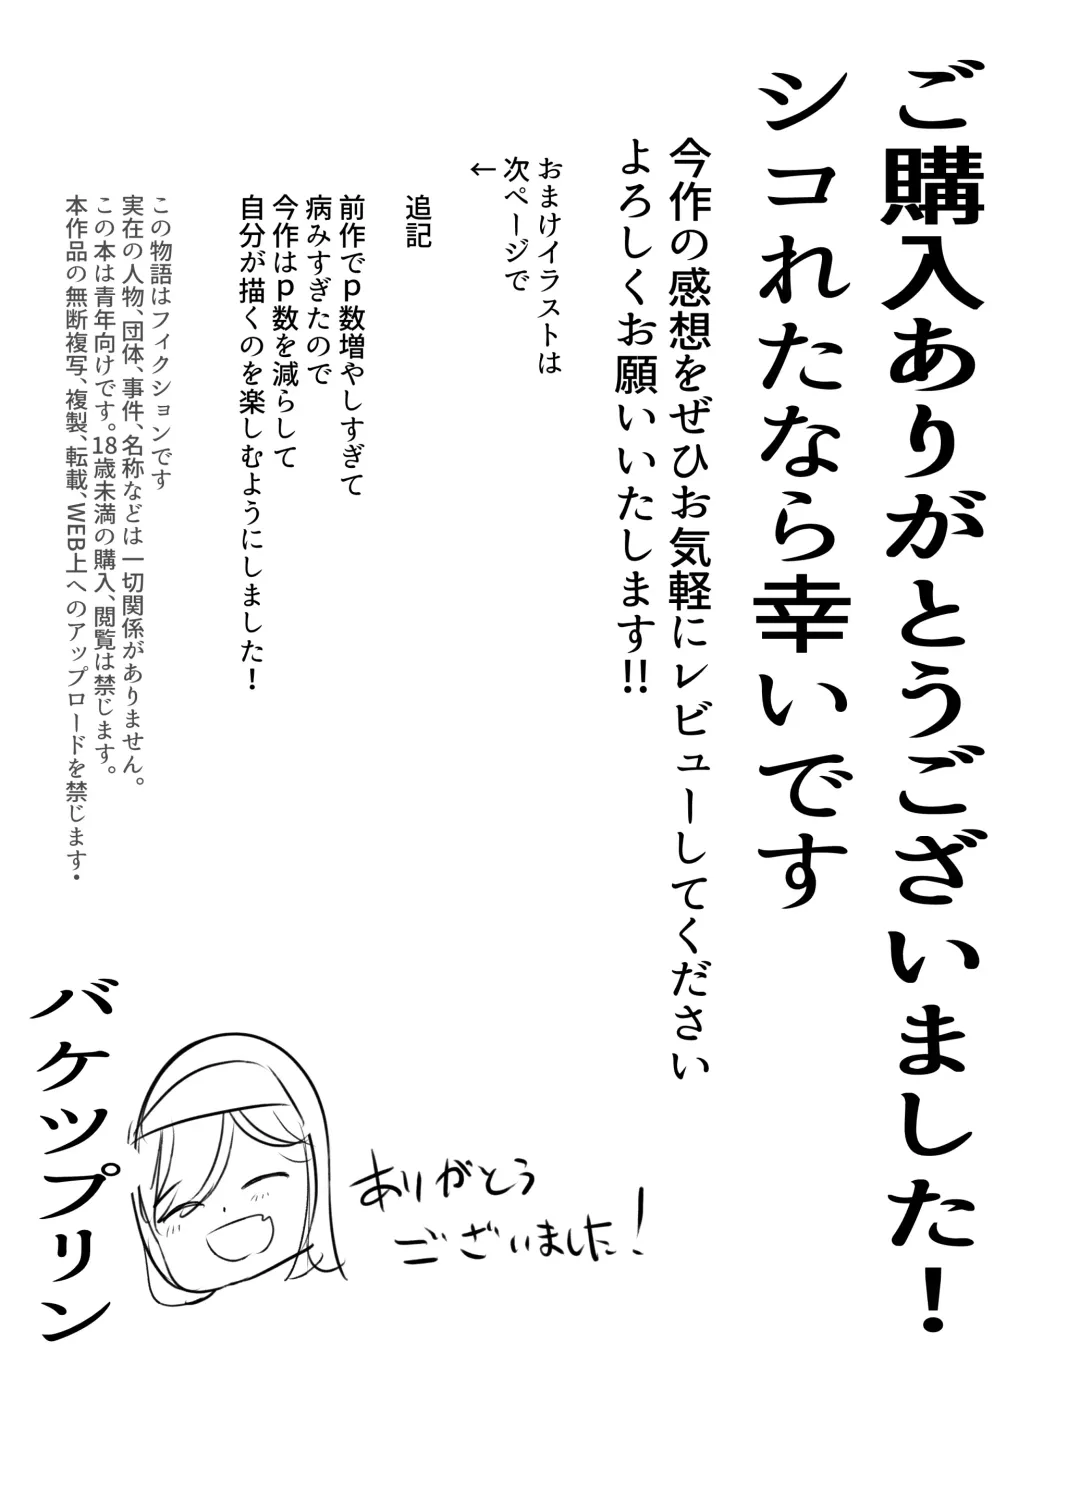 ご購入ありがとうございました！
シコれたなら幸いです
今作の感想をぜひお気軽にレビューしてください
よろしくお願いいたします!!
おまけイラストは
次ページで
←
追記
前作でｐ数増やしすぎて
病みすぎたので
今作はｐ数を減らして
自分が描くのを楽しむようにしました！
この物語はフィクションです
実在の人物、団体、事件、名称などは一切関係がありません。
この本は青年向けです。18歳未満の購入、閲覧は禁じます。
本作品の無断複写、複製、転載、WEB上へのアップロードを禁じます・
ありがとう
ございました！
バケツプリン